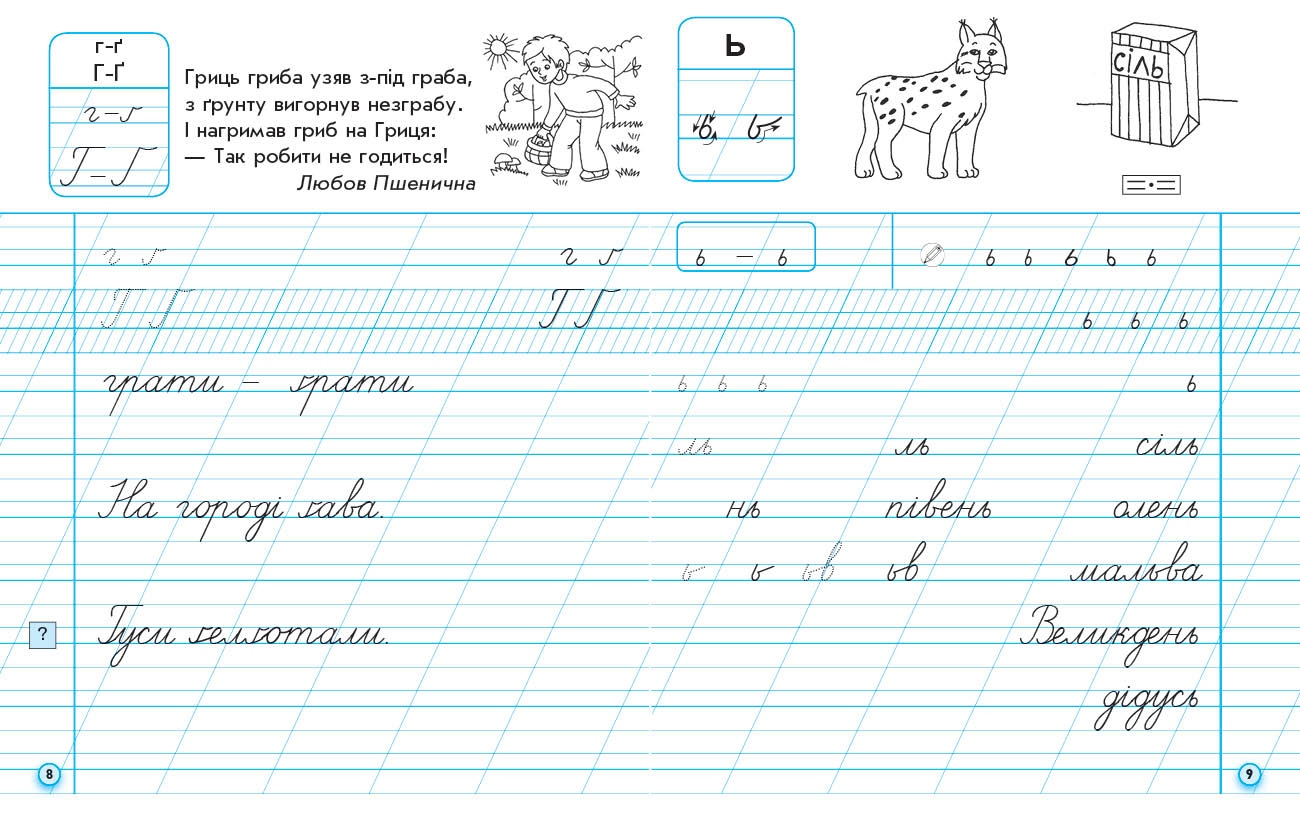 г-ґ
Г-Ґ
г – ґ
Г – Ґ
Гриць гриба узяв з-під граба,
з ґрунту вигорнув незграбу.
І нагримав гриб на Гриця:
— Так робити не годиться!
Любов Пшенична
г ґ г ґ
Г Ґ Г Ґ
грати – ґрати
На городі ґава.
?
Гуси ґелґотали.
8
Ь
ь ь
СІЛЬ
ь – ь
ь ь ь ь ь
ь ь ь
ь ь ь ь
ль ль сіль
нь півень олень
ь ь ьв ьв мальва
Великдень
дідусь
9